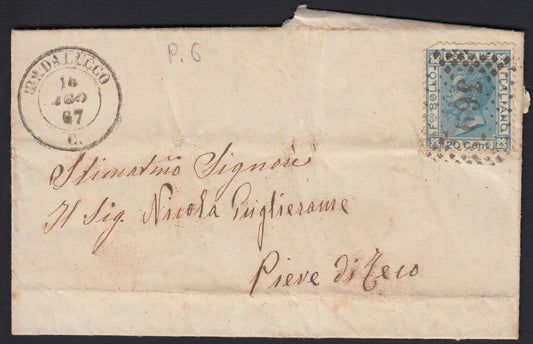 P. 6
BADALUCCO
67
C.
FCO BOLLO
ITALIANO
20 Cent
Stimatmo Signore
Il Sig. Nicola Guglierame
Pieve di Teco